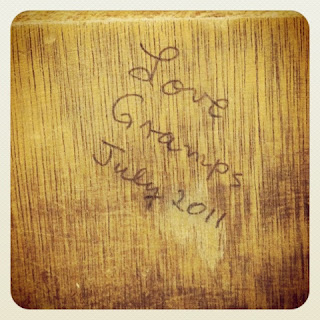 Love
Gramps
July 2011